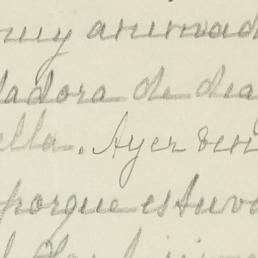 muy animad
dadora de dea
ella. Ayer ven
porque estuvo